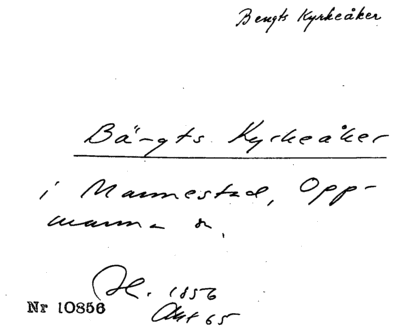 Bengts Kyrkeåker
Bä-gts Kyrkeåker
i Mannestad, Opp-
manna sn.
H. 1856
Akt 65
Nr 10856